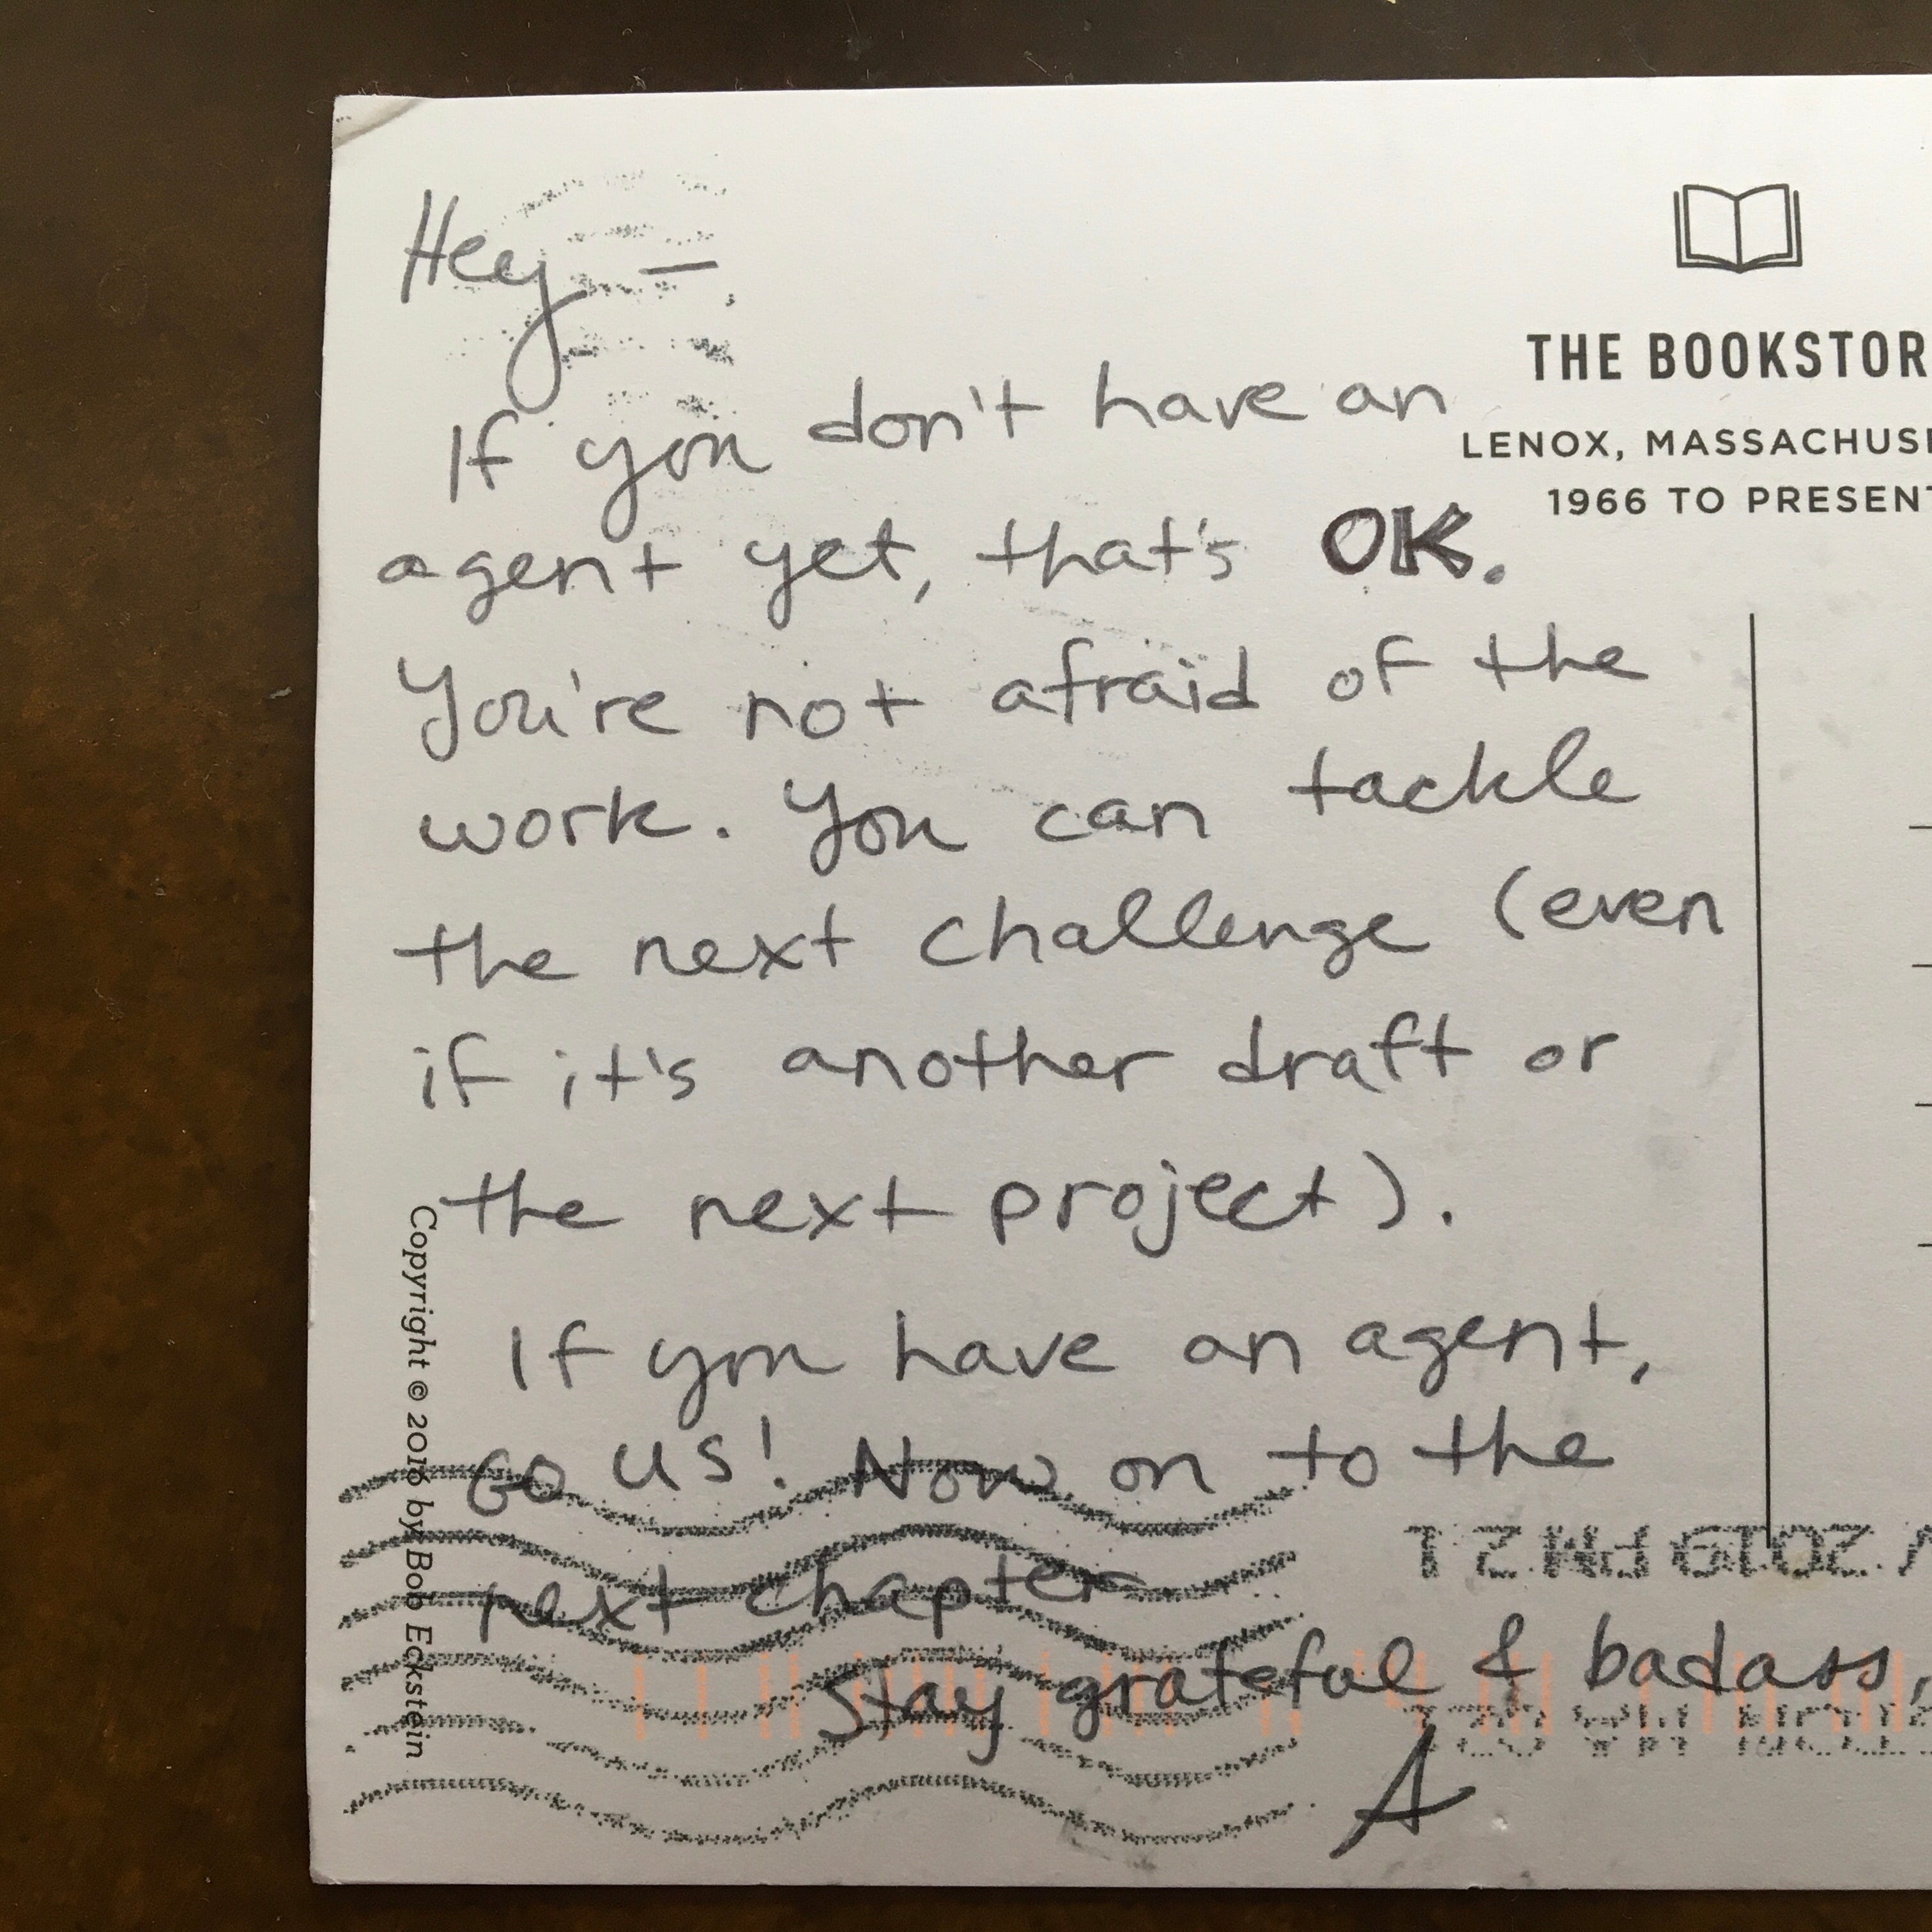 Hey —
If you don't have an
agent yet, that's OK.
You're not afraid of the
work. You can tackle
the next challenge (even
if it's another draft or
the next project).
If you have an agent,
GO US! Now on to the
next chapter
Stay grateful & badass,
A
THE BOOKSTOR
LENOX, MASSACHUSE
1966 TO PRESENT
Copyright © 2016 by Bob Eckstein